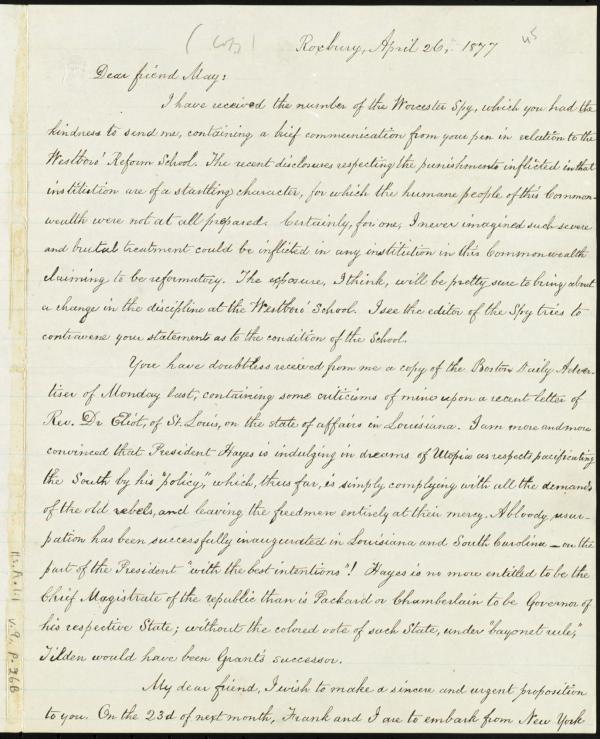 (Copy)
45
Roxbury, April 26, 1877
Dear friend May:
I have received the number of the Worcester Spy, which you had the
kindness to send me, containing a brief communication from your pen in relation to the
Westboro' Reform School. The recent disclosures respecting the punishments inflicted in that
institution are of a startling character, for which the humane people of this Common-
wealth were not at all prepared. Certainly, for one, I never imagined such severe
and brutal treatment could be inflicted in any institution in this Commonwealth
claiming to be reformatory. The exposure, I think, will be pretty sure to bring about
a change in the discipline at the Westboro' School. I see the editor of the Spy tries to
contravene your statement as to the condition of the School.
You have doubtless received from me a copy of the Boston Daily Adver-
tiser of Monday last, containing some criticisms of mine upon a recent letter of
Rev. Dr Eliot, of St. Louis, on the state of affairs in Louisiana. I am more and more
convinced that President Hayes is indulging in dreams of Utopia as respects pacificating
the South by his "policy," which, thus far, is simply complying with all the demands
of the old rebels, and leaving the freedmen entirely at their mercy. A bloody usur-
pation has been successfully inaugurated in Louisiana and South Carolina—on the
part of the President "with the best intentions"! Hayes is no more entitled to be the
Chief Magistrate of the republic than is Packard or Chamberlain to be Governor of
his respective State; without the colored vote of such State, under "bayonet rule,"
Tilden would have been Grant's successor.
My dear friend, I wish to make a sincere and urgent proposition
to you. On the 23d of next month, Frank and I are to embark from New York
v.9, p.26B